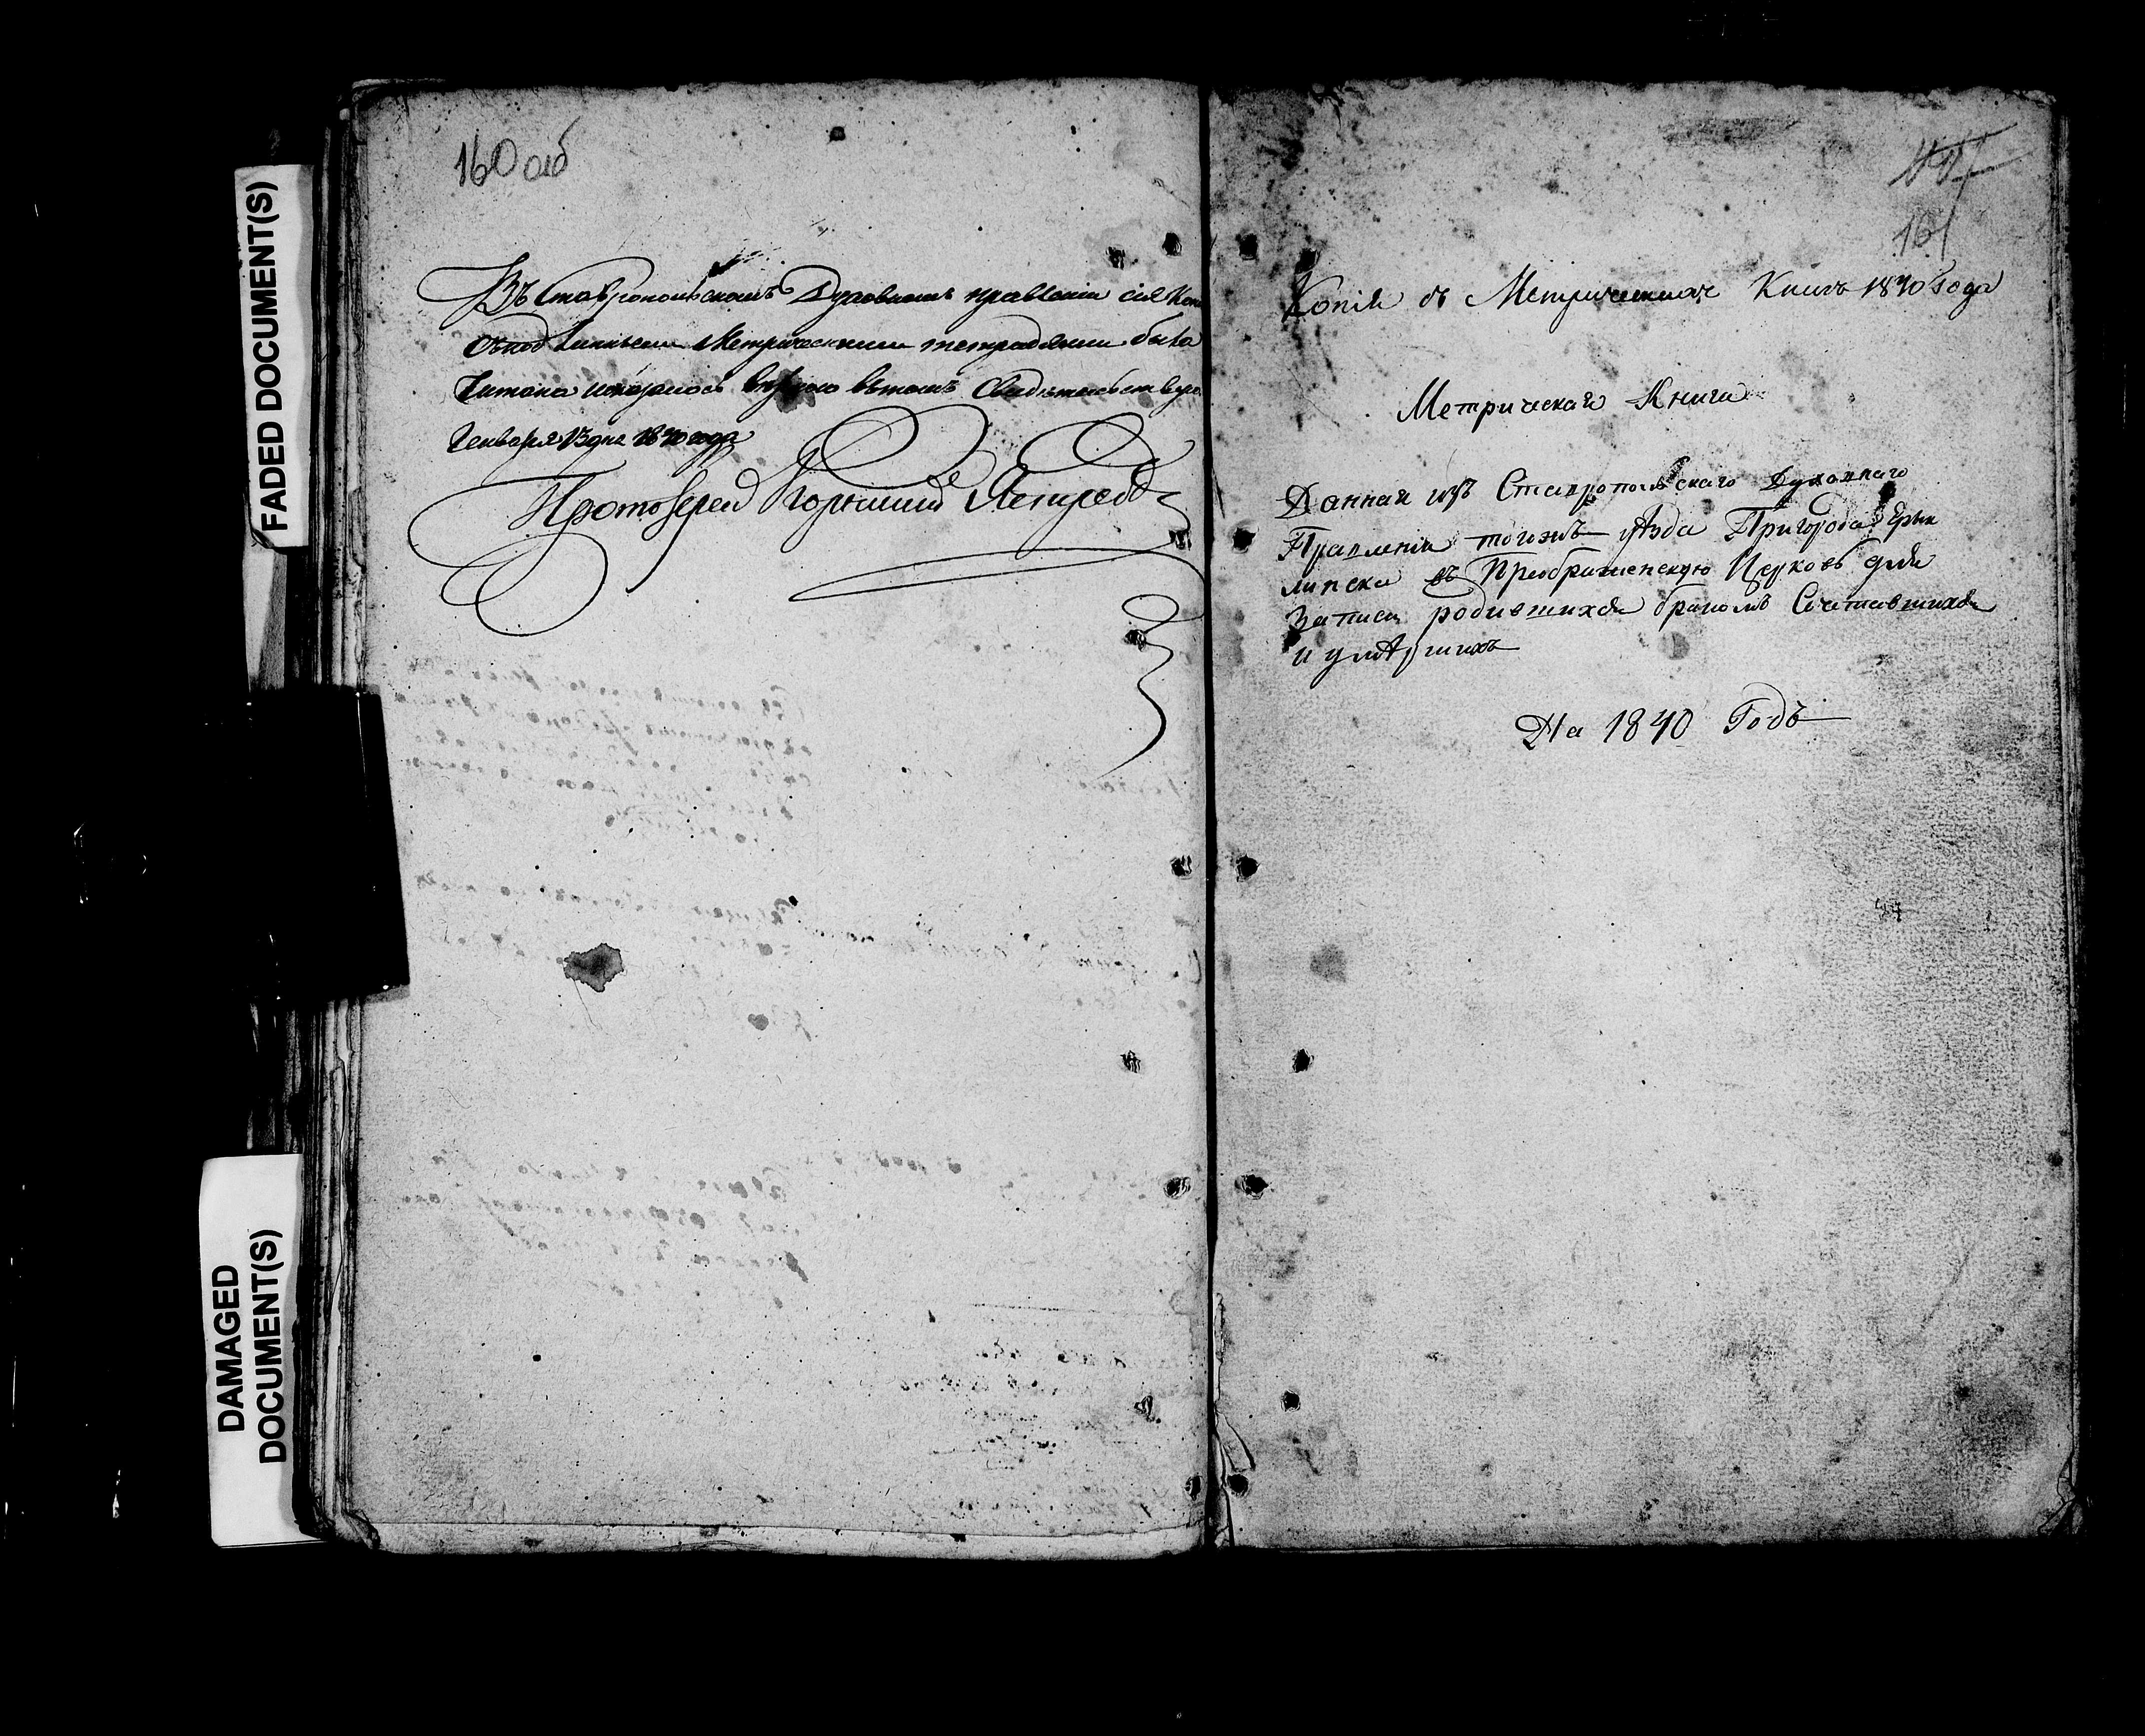 FADED DOCUMENT(S)
DAMAGED
DOCUMENT(S)
160 об
Въ Ставропольскомъ Духовномъ правленіи сія Копі
съ подлинными Метрическими тетрадями была
Читана и оказалась вѣрною въ томъ Свидетельствую
Генваря 13 дня 1840 года
Протоіерей
161
Копія съ Метрическихъ Книгъ 1840 года
Метрическая Книга
Данная изъ Ставропольскаго Духовнаго
Правленія тогожъ уѣзда Пригорода Ерык
линска въ Преображенскую Церковь для
Записи родившихся бракомъ Сочетавшихся
и умѣршихъ
На 1840 Годъ